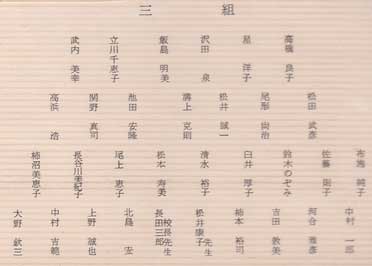 三組
高橋 良子
星 洋子
沢田 泉
飯島 明美
立川 千恵子
武内 美幸
松田 武彦
尾形 尚治
松井 誠一
溝上 克則
池田 安隆
関野 真司
高浜 浩
布施 純子
佐藤 則子
鈴木 のぞみ
臼井 厚子
清水 裕子
松本 寿美
尾上 恵子
長谷川 美紀子
柿沼 美恵子
中村 一郎
河合 雅彦
吉田 敦美
柿本 裕司
松井 康子 先生
長田 三郎 校長先生
北島 宏
上野 誠也
中村 吉範
大野 欽三